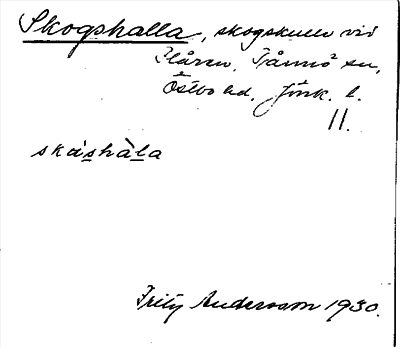 Skogshalla, skogskulle vid
Flåren, Tånnö sn,
Östbo hd. Jönk. l.
11.
skàshàla
Fritz Andersson 1930.